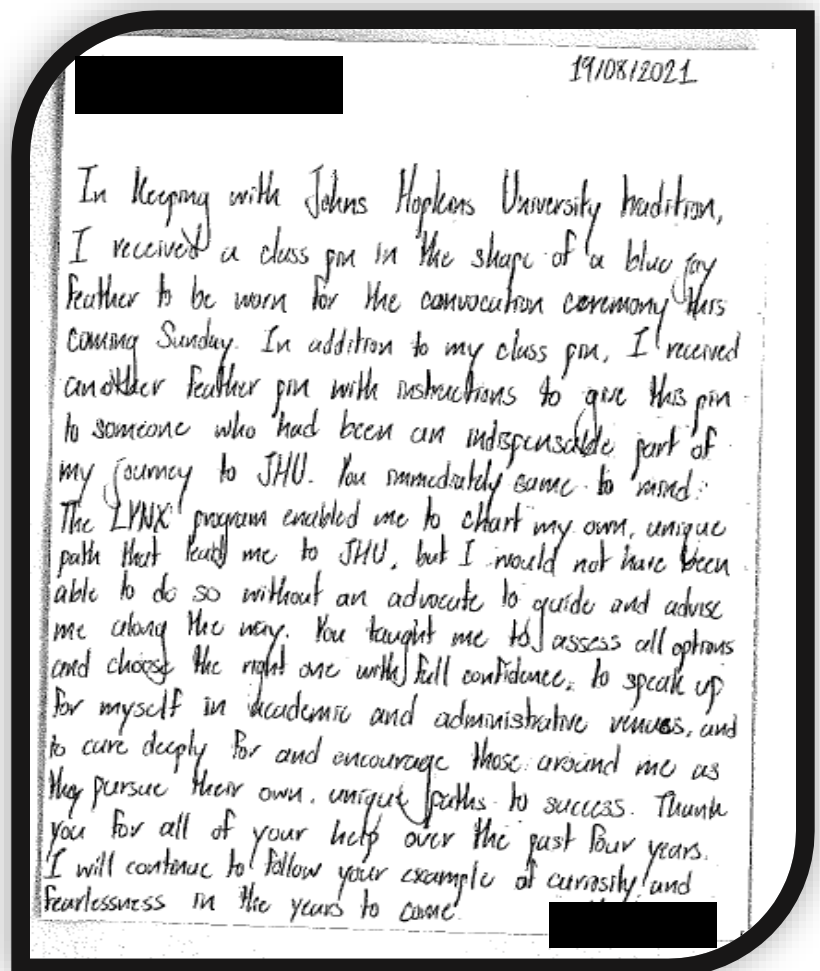 19/08/2021
In keeping with Johns Hopkins University tradition,
I received a class pin in the shape of a blue jay
feather to be worn for the convocation ceremony this
coming Sunday. In addition to my class pin, I received
another feather pin with instructions to give this pin
to someone who had been an indispensable part of
my journey to JHU. You immediately came to mind.
The LYNX program enabled me to chart my own, unique
path that lead me to JHU, but I would not have been
able to do so without an advocate to guide and advise
me along the way. You taught me to assess all options
and choose the right one with full confidence, to speak up
for myself in academic and administrative venues, and
to care deeply for and encourage those around me as
they pursue their own, unique paths to success. Thank
you for all of your help over the past four years.
I will continue to follow your example of curiosity and
fearlessness in the years to come.